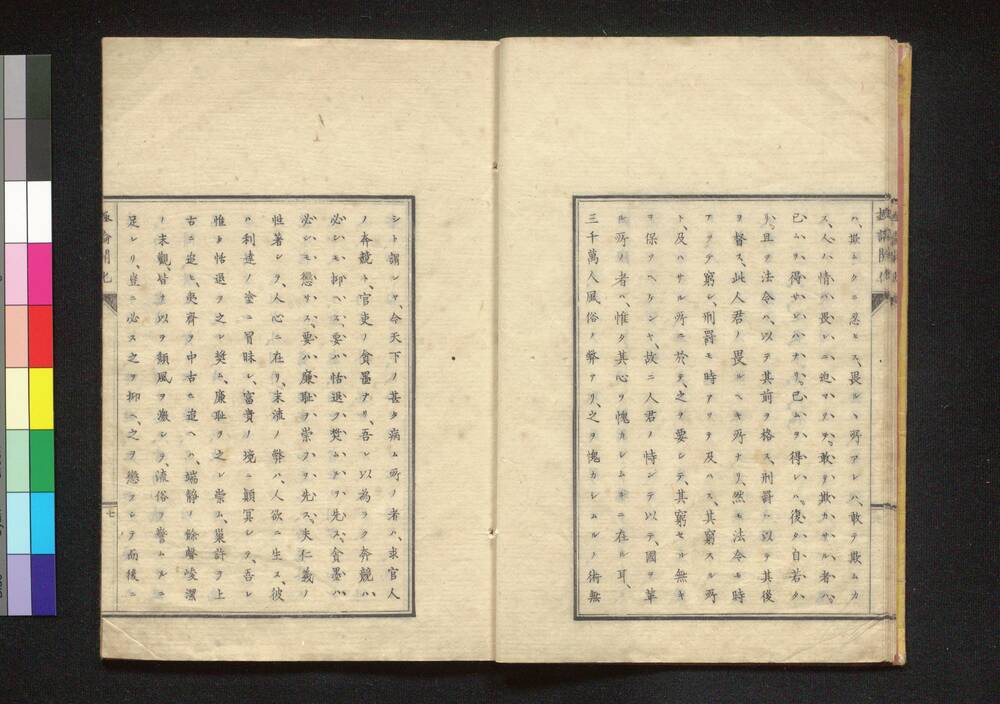 ハ、欺ムクニ忍ヒス、畏ルヽ所アレハ、敢テ欺ムカ
ス、人ハ情ハ畏レニ迫マラテ、敢テ欺カサル者ハ、
已ムヲ得サレハナリ、已ムヲ得レハ、復タ自若タ
リ、且ツ法令ハ、以テ其前ヲ格ス、刑罰ハ以テ其後
ヲ督ス、此人君ノ畏ルヘキ所ナリ、然モ法令モ時
アツテ窮シ、刑罰モ時アリテ及ハス、其窮スル所
ト、及ハサル所ニ於テ、之ヲ要シテ、其窮セル無キ
ヲ保ツヘケンヤ、故ニ人君ノ恃ンテ以テ、國ヲ革
ル所ノ者ハ、惟タ其心ヲ愧カシムルニ在ル耳、
三千萬人風俗ノ弊アリ、之ヲ愧カシムルノ術無
シト謂シヤ、今天下ノ甚タ病ム所ノ者ハ、求官人
ノ奔競ト、官吏ノ貪墨アリ、吾レ以為ラク奔競ハ、
必シモ抑ヘス、要ハ恬退ヲ奨ムルヲ先ス、貪墨ハ、
必シモ懲サス、要ハ廉耻ヲ崇フヲ先ス、夫仁義ノ
性著シヲ、人心ニ在リ、末流ノ弊ハ、人欲ニ生ス、彼
ハ利達ノ塗ニ冒昧シ、富貴ノ境ニ顛冥シテ、吾レ
惟タ恬退ヲ之レ奨ム、廉耻ヲ之レ崇ム、巣許ヲ上
古ニ追ヒ、夷齊ヲ中古ニ追ヘハ、端静ノ餘聲峻潔
ノ末觀、皆ナ以テ頽風ヲ激シテ、流俗ヲ警ムルニ
足レリ、豈ニ必ス之ヲ抑ヘ、之ヲ懲フシテ而後ニ
七